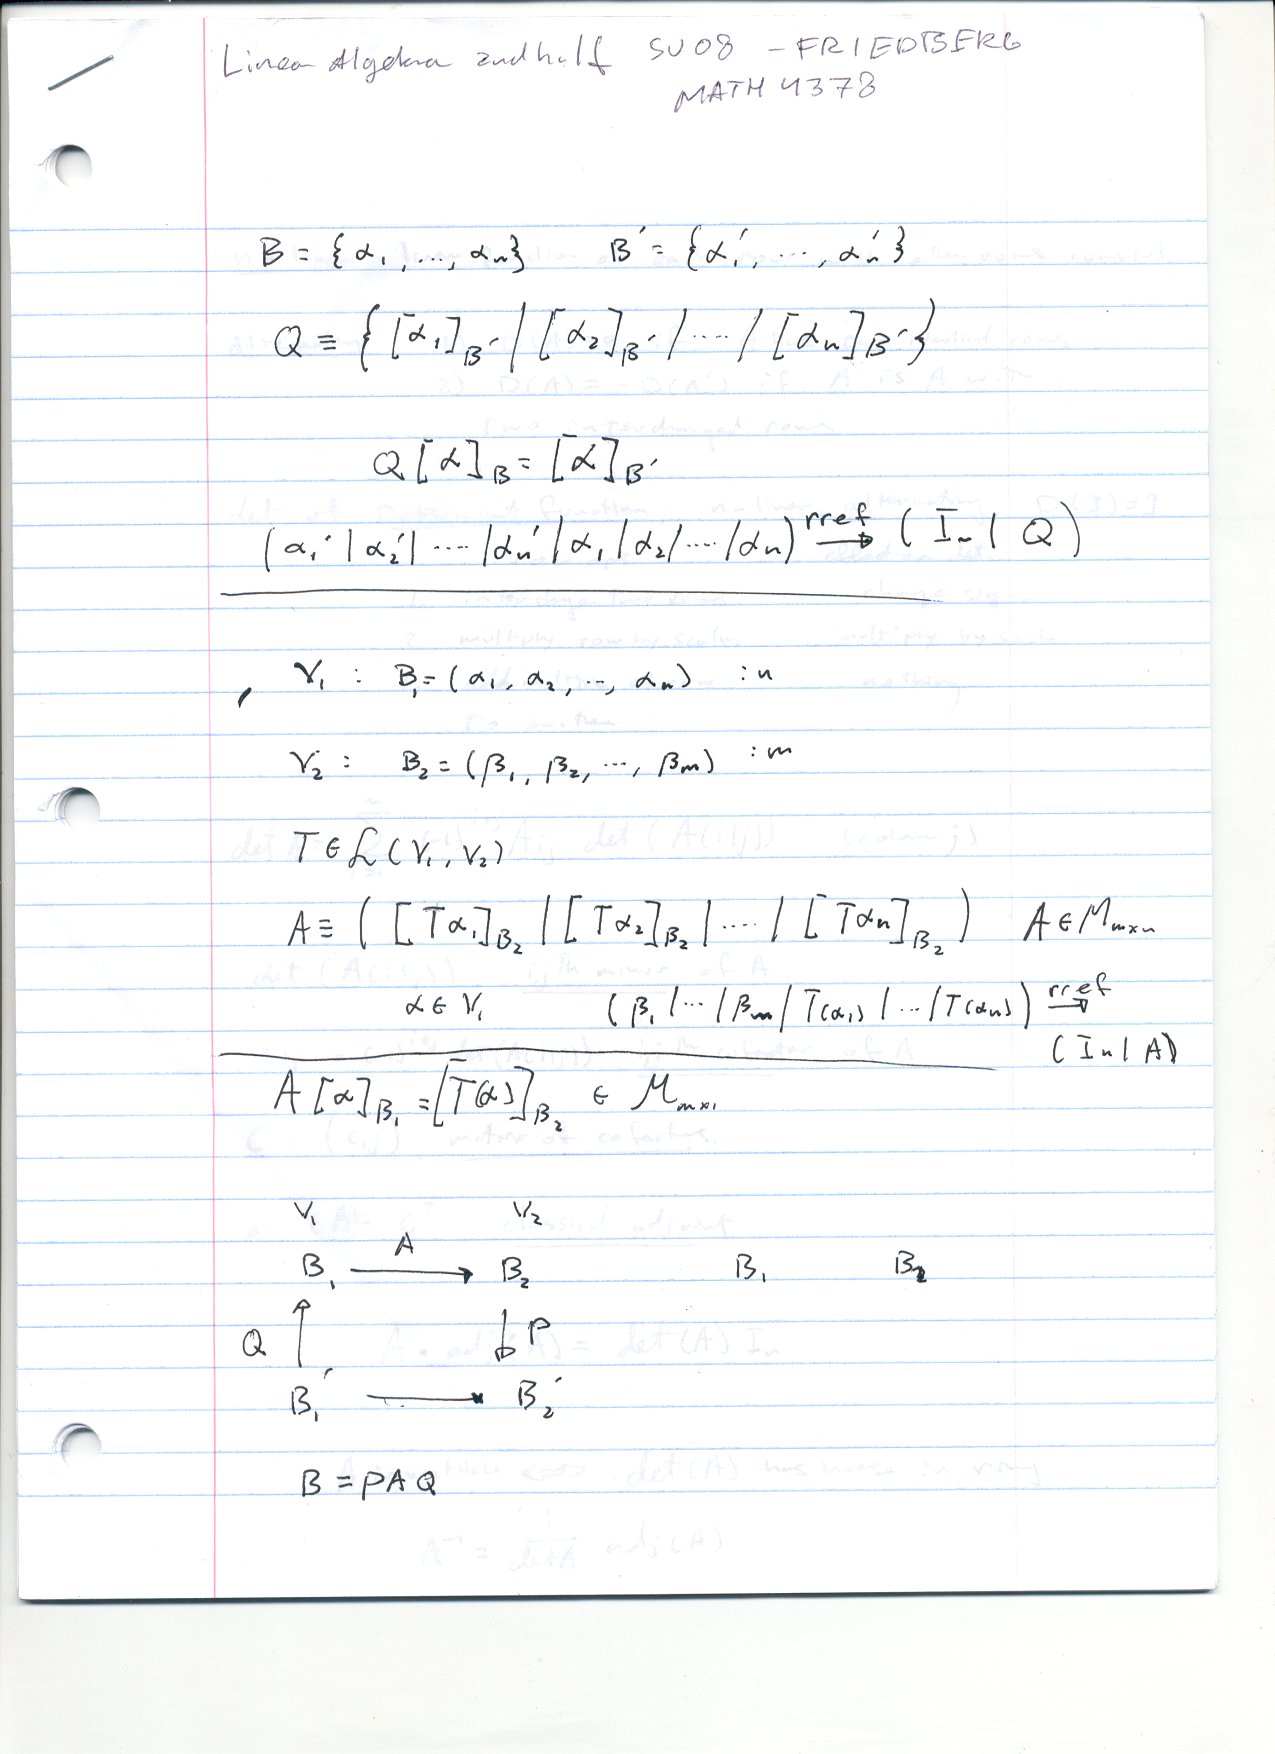 Linear Algebra 2nd half SU08 - FRIEDBERG
MATH 4378
B = {α₁, ..., αₙ} B′ = {α₁′, ..., αₙ′}
Q ≡ {[α₁]_B′ | [α₂]_B′ | .... | [αₙ]_B′}
Q[α]_B = [α]_B′
(α₁′ | α₂′ | .... | αₙ′ | α₁ | α₂ | .... | αₙ) rref→ (Iₙ | Q)
V₁ : B₁ = (α₁, α₂, .., αₙ) : n
V₂ : B₂ = (β₁, β₂, ..., βₘ) : m
T ∈ L(V₁, V₂)
A ≡ ([Tα₁]_B₂ | [Tα₂]_B₂ | .... | [Tαₙ]_B₂) A ∈ M_m×n
α ∈ V₁ (β₁ | ... | βₘ | T(α₁) | ... | T(αₙ)) rref→
(Iₙ | A)
A[α]_B₁ = [T(α)]_B₂ ∈ M_m×1
V₁ V₂
A
B₁ → B₂ B₁ B₂
Q ↑ ↓ P
B₁′ → B₂′
B = PAQ